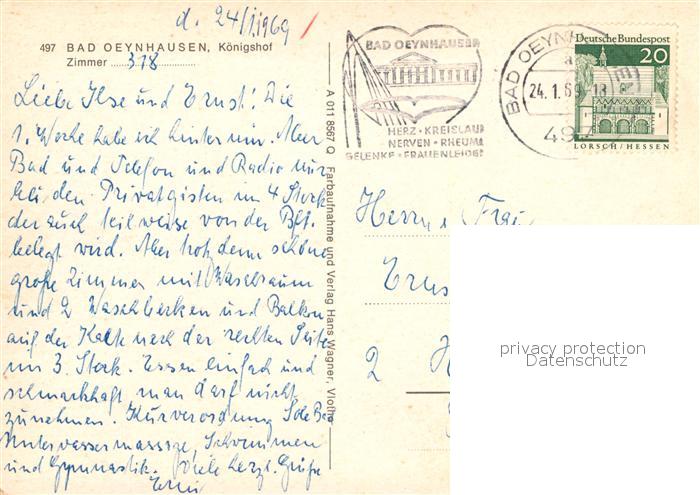 d. 24/1.1969
497 BAD OEYNHAUSEN, Königshof
Zimmer 318
Liebe Ilse und Ernst! Die
1. Woche habe ich hinter mir. Aber
Bad und Telefon und Radio nur
bei den Privatgästen im 4 Stock
der auch teilweise von der Bft.
belegt wird. Aber trotzdem schöne
große Zimmer mit Waschraum
und 2 Waschbecken und Balkon
auf der Karte nach der rechten Seite
im 3. Stock. Essen einfach und
schmackhaft, man darf nicht
zunehmen. Kurverordnung Sole Bad
Unterwassermassage, Schwimmen
und Gymnastik. Viele herzl. Grüße
A 011 8567 Q Farbaufnahme und Verlag Hans Wagner, Vlotho
BAD OEYNHAUSEN
HERZ · KREISLAUF
NERVEN · RHEUMA
GELENKE · FRAUENLEIDEN
BAD OEYNH
a
24.1.69-18
497
Deutsche Bundespost
20
LORSCH/HESSEN
Herrn u. Frau
Erns
2 H
privacy protection
Datenschutz